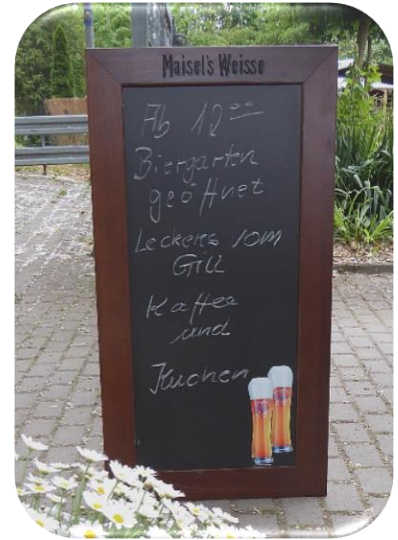 Maisel's Weisse
Ab 12⁰⁰
Biergarten
geöffnet
Leckeres vom
Gill
Kaffee
und
Kuchen